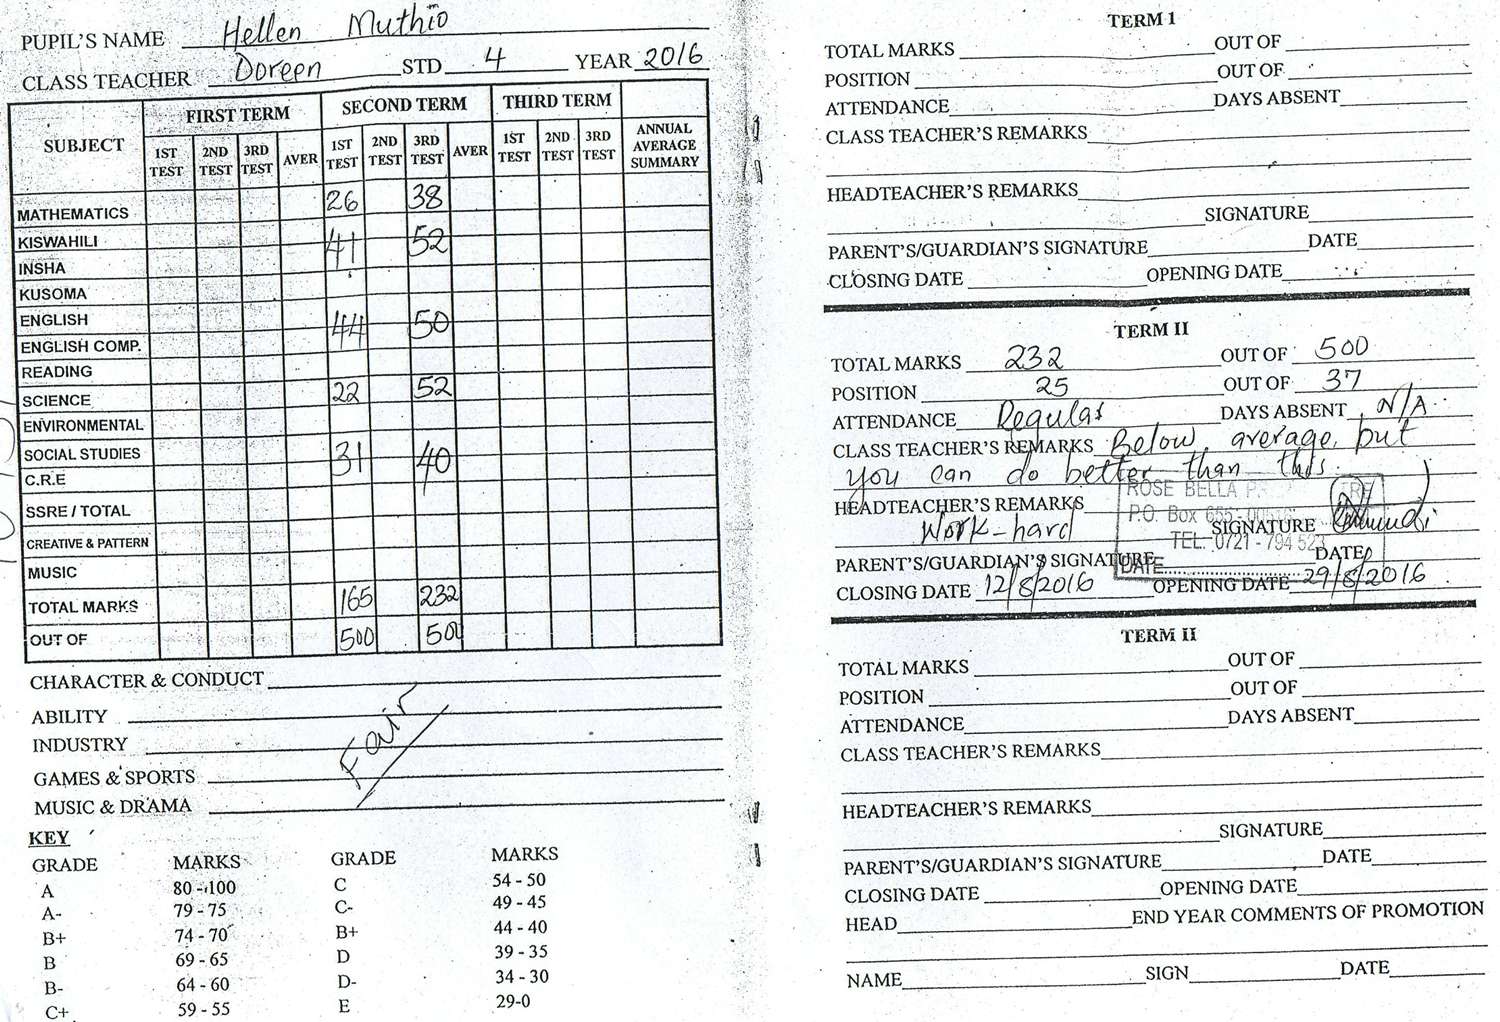 PUPIL'S NAME Hellen Muthio
CLASS TEACHER Doreen STD 4 YEAR 2016
SUBJECT FIRST TERM SECOND TERM THIRD TERM ANNUAL AVERAGE SUMMARY
1ST TEST 2ND TEST 3RD TEST AVER 1ST TEST 2ND TEST 3RD TEST AVER 1ST TEST 2ND TEST 3RD TEST
MATHEMATICS 26 38
KISWAHILI 41 52
INSHA
KUSOMA
ENGLISH 44 50
ENGLISH COMP.
READING
SCIENCE 22 52
ENVIRONMENTAL
SOCIAL STUDIES 31 40
C.R.E
SSRE / TOTAL
CREATIVE & PATTERN
MUSIC
TOTAL MARKS 165 232
OUT OF 500 500
CHARACTER & CONDUCT
ABILITY
INDUSTRY
Fair
GAMES & SPORTS
MUSIC & DRAMA
KEY
GRADE MARKS GRADE MARKS
A 80 - 100 C 54 - 50
A- 79 - 75 C- 49 - 45
B+ 74 - 70 B+ 44 - 40
B 69 - 65 D 39 - 35
B- 64 - 60 D- 34 - 30
C+ 59 - 55 E 29-0
TERM 1
TOTAL MARKS OUT OF
POSITION OUT OF
ATTENDANCE DAYS ABSENT
CLASS TEACHER'S REMARKS
HEADTEACHER'S REMARKS
SIGNATURE
PARENT'S/GUARDIAN'S SIGNATURE DATE
CLOSING DATE OPENING DATE
TERM II
TOTAL MARKS 232 OUT OF 500
POSITION 25 OUT OF 37
ATTENDANCE Regular DAYS ABSENT N/A
CLASS TEACHER'S REMARKS Below average, but
you can do better than this.
ROSE BELLA
HEADTEACHER'S REMARKS
P.O. Box 655 -
Work-hard SIGNATURE
TEL: 0721 - 794 523
PARENT'S/GUARDIAN'S SIGNATURE DATE
DATE
CLOSING DATE 12/8/2016 OPENING DATE 29/8/2016
TERM II
TOTAL MARKS OUT OF
POSITION OUT OF
ATTENDANCE DAYS ABSENT
CLASS TEACHER'S REMARKS
HEADTEACHER'S REMARKS
SIGNATURE
PARENT'S/GUARDIAN'S SIGNATURE DATE
CLOSING DATE OPENING DATE
HEAD END YEAR COMMENTS OF PROMOTION
NAME SIGN DATE